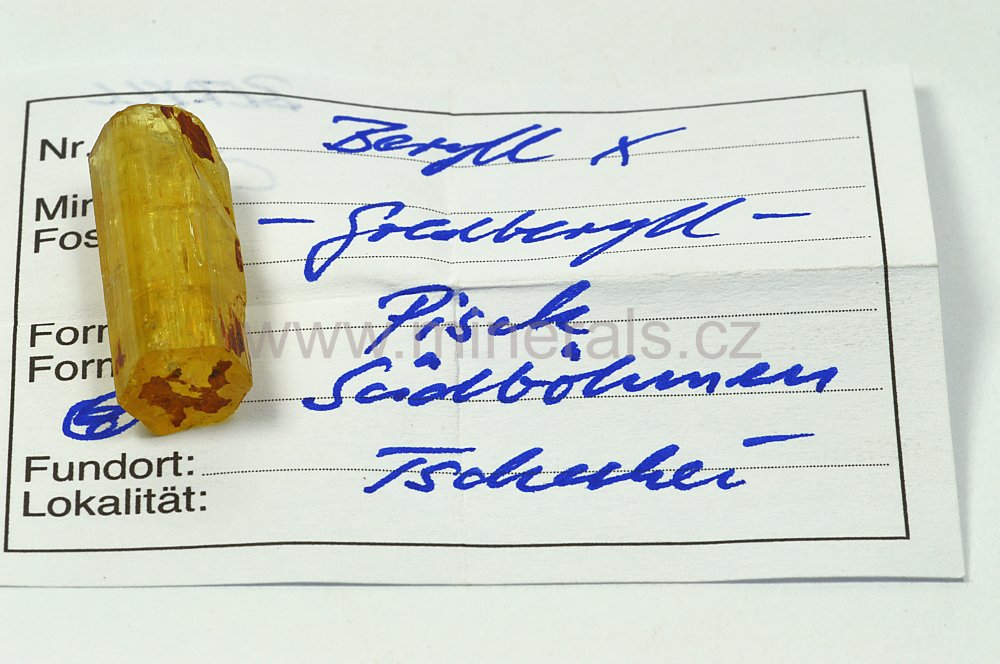 Nr. Beryll x
Min
Fos - Goldberyll -
Form Pisek
Form Südböhmen
Fundort: Tschechei
Lokalität:
www.minerals.cz